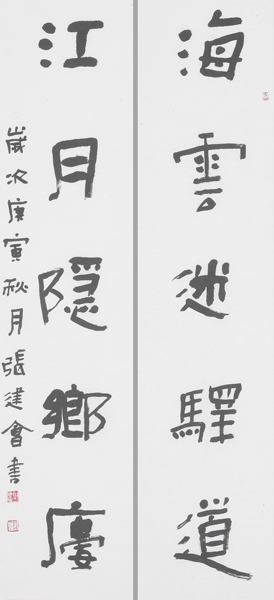 海雲迷驛道
江月隱鄉廔
歲次庚寅秋月張建會書